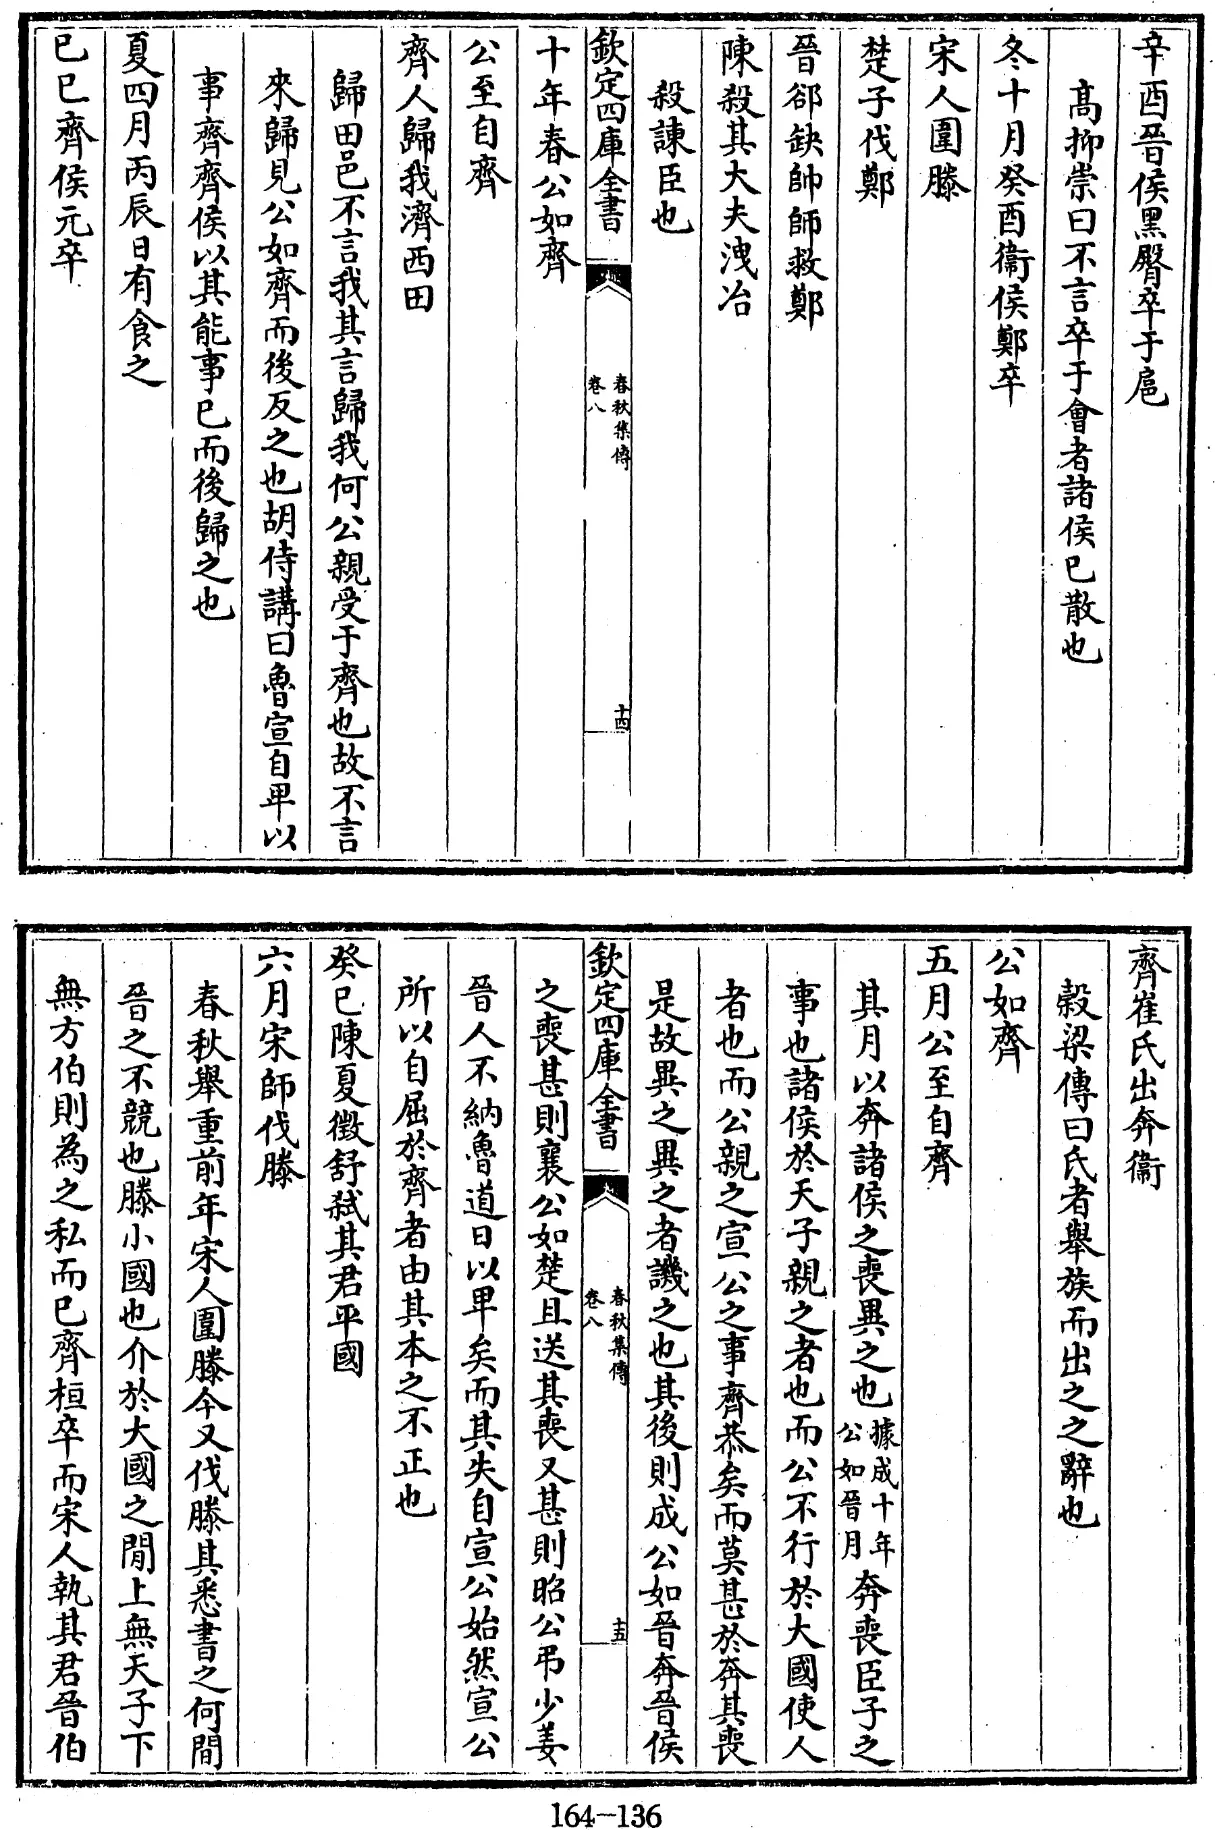 辛酉晉侯黑臀卒于扈
高抑崇曰不言卒于會者諸侯已散也
冬十月癸酉衞侯鄭卒
宋人圍滕
楚子伐鄭
晉郤缺帥師救鄭
陳殺其大夫洩冶
殺諫臣也
欽定四庫全書
春秋集傳
卷八
十四
十年春公如齊
公至自齊
齊人歸我濟西田
歸田邑不言我其言歸我何公親受于齊也故不言
來歸見公如齊而後反之也胡侍講曰魯宣自卑以
事齊齊侯以其能事已而後歸之也
夏四月丙辰日有食之
己巳齊侯元卒
齊崔氏出奔衞
穀梁傳曰氏者舉族而出之之辭也
公如齊
五月公至自齊
其月以奔諸侯之喪異之也據成十年公如晉月奔喪臣子之
事也諸侯於天子親之者也而公不行於大國使人
者也而公親之宣公之事齊恭矣而莫甚於奔其喪
是故異之異之者譏之也其後則成公如晉奔晉侯
欽定四庫全書
春秋集傳
卷八
十五
之喪甚則襄公如楚且送其喪又甚則昭公弔少姜
晉人不納魯道日以卑矣而其失自宣公始然宣公
所以自屈於齊者由其本之不正也
癸巳陳夏徵舒弑其君平國
六月宋師伐滕
春秋舉重前年宋人圍滕今又伐滕其悉書之何閒
晉之不競也滕小國也介於大國之閒上無天子下
無方伯則為之私而已齊桓卒而宋人執其君晉伯
164-136